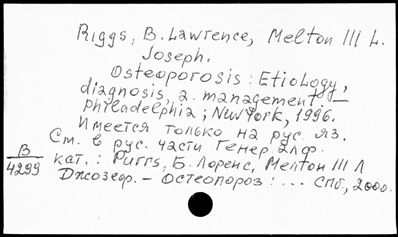 Riggs, B. Lawrence, Melton III L.
Joseph.
Osteoporosis : Etiology,
diagnosis, a. management. —
Philadelphia ; New York, 1996.
Имеется только на рус. яз.
См. в рус. части Генер. алф.
кат. : Риггс, Б. Лоренс, Мелтон III Л
Джозеф. – Остеопороз : ... СПб, 2000.
B
4299